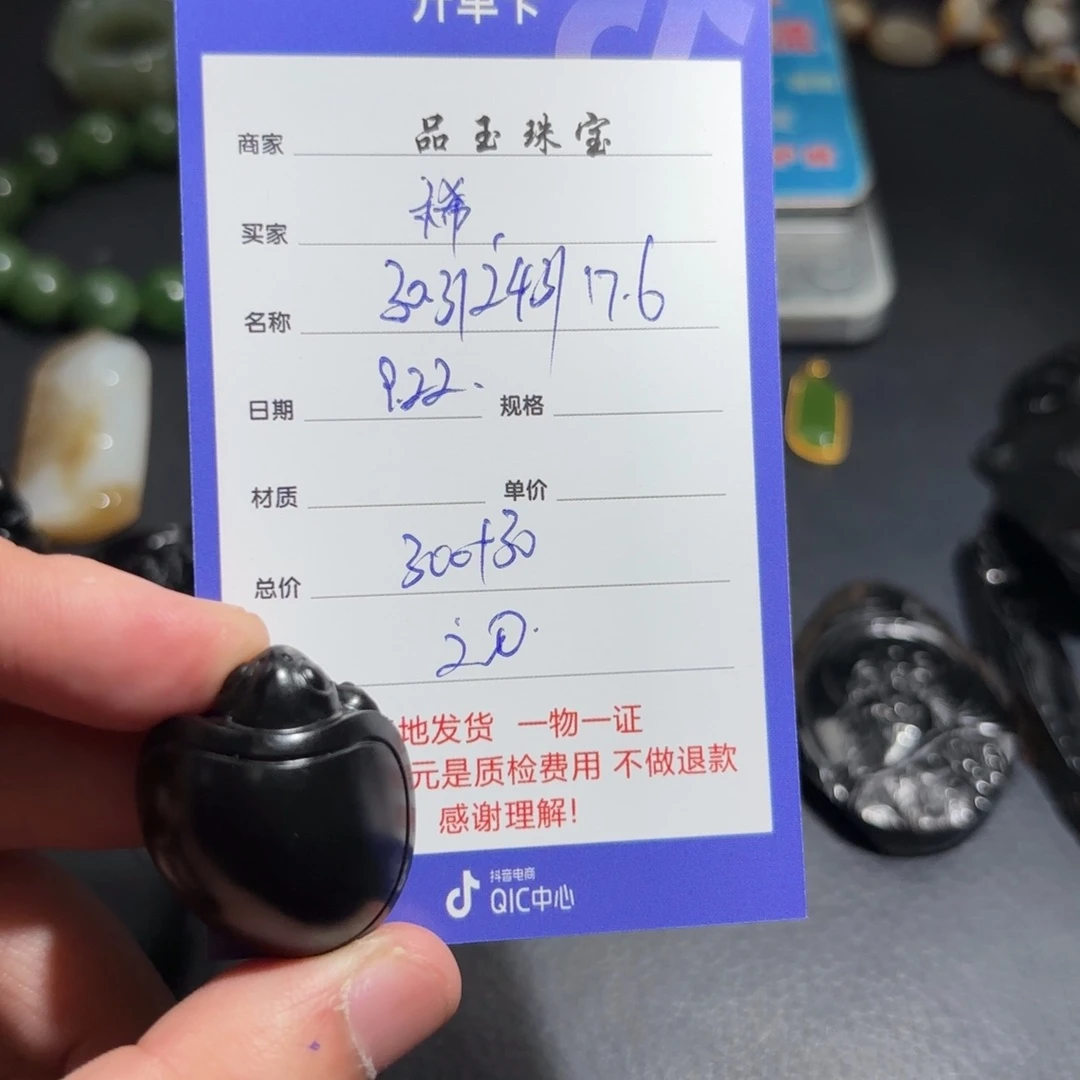 开单卡
商家 品玉珠宝
买家 稀
名称 17.6
日期 9.22. 规格
材质 单价
总价 300+30
地发货 一物一证
元是质检费用 不做退款
感谢理解!
抖音电商
QIC中心